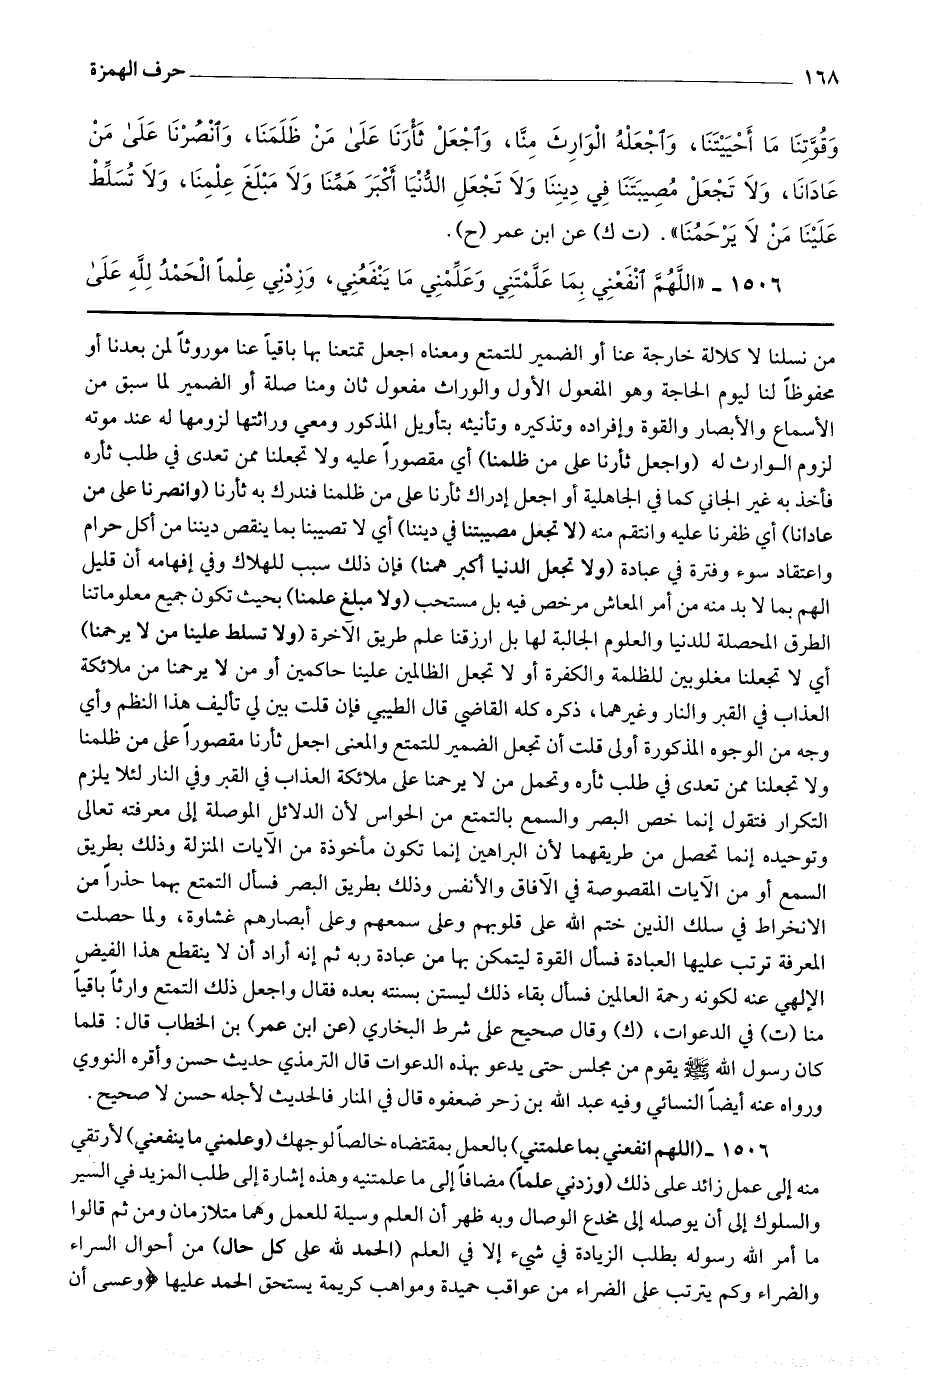 ١٦٨ ــــــــــــــــــــ حرف الهمزة
وَقُوَّتِنَا مَا أَحْيَيْتَنَا، وَٱجْعَلْهُ الْوَارِثَ مِنَّا، وَٱجْعَلْ ثَأْرَنَا عَلَىٰ مَنْ ظَلَمَنَا، وَٱنْصُرْنَا عَلَىٰ مَنْ
عَادَانَا، وَلَا تَجْعَلْ مُصِيبَتَنَا فِي دِينِنَا وَلَا تَجْعَلِ الدُّنْيَا أَكْبَرَ هَمِّنَا وَلَا مَبْلَغَ عِلْمِنَا، وَلَا تُسَلِّطْ
عَلَيْنَا مَنْ لَا يَرْحَمُنَا». (ت ك) عن ابن عمر (ح).
١٥٠٦ ـ «اللَّهُمَّ ٱنْفَعْنِي بِمَا عَلَّمْتَنِي وَعَلِّمْنِي مَا يَنْفَعُنِي، وَزِدْنِي عِلْماً الْحَمْدُ لِلَّهِ عَلَىٰ
من نسلنا لا كلالة خارجة عنا أو الضمير للتمتع ومعناه اجعل تمتعنا بها باقياً عنا موروثاً لمن بعدنا أو
محفوظاً لنا ليوم الحاجة وهو المفعول الأول والوراث مفعول ثان ومنا صلة أو الضمير لما سبق من
الأسماع والأبصار والقوة وإفراده وتذكيره وتأنيثه بتأويل المذكور ومعي وراثتها لزومها له عند موته
لزوم الـوارث له (واجعل ثأرنا على من ظلمنا) أي مقصوراً عليه ولا تجعلنا ممن تعدى في طلب ثأره
فأخذ به غير الجاني كما في الجاهلية أو اجعل إدراك ثأرنا على من ظلمنا فندرك به ثأرنا (وانصرنا على من
عادانا) أي ظفرنا عليه وانتقم منه (لا تجعل مصيبتنا في ديننا) أي لا تصيبنا بما ينقص ديننا من أكل حرام
واعتقاد سوء وفترة في عبادة (ولا تجعل الدنيا أكبر همنا) فإن ذلك سبب للهلاك وفي إفهامه أن قليل
الهم بما لا بد منه من أمر المعاش مرخص فيه بل مستحب (ولا مبلغ علمنا) بحيث تكون جميع معلوماتنا
الطرق المحصلة للدنيا والعلوم الجالبة لها بل ارزقنا علم طريق الآخرة (ولا تسلط علينا من لا يرحمنا)
أي لا تجعلنا مغلوبين للظلمة والكفرة أو لا تجعل الظالمين علينا حاكمين أو من لا يرحمنا من ملائكة
العذاب في القبر والنار وغيرهما، ذكره كله القاضي قال الطيبي فإن قلت بين لي تأليف هذا النظم وأي
وجه من الوجوه المذكورة أولى قلت أن تجعل الضمير للتمتع والمعنى اجعل ثأرنا مقصوراً على من ظلمنا
ولا تجعلنا ممن تعدى في طلب ثأره وتحمل من لا يرحمنا على ملائكة العذاب في القبر وفي النار لئلا يلزم
التكرار فتقول إنما خص البصر والسمع بالتمتع من الحواس لأن الدلائل الموصلة إلى معرفته تعالى
وتوحيده إنما تحصل من طريقهما لأن البراهين إنما تكون مأخوذة من الآيات المنزلة وذلك بطريق
السمع أو من الآيات المقصوصة في الآفاق والأنفس وذلك بطريق البصر فسأل التمتع بهما حذراً من
الانخراط في سلك الذين ختم الله على قلوبهم وعلى سمعهم وعلى أبصارهم غشاوة، ولما حصلت
المعرفة ترتب عليها العبادة فسأل القوة ليتمكن بها من عبادة ربه ثم إنه أراد أن لا ينقطع هذا الفيض
الإلهي عنه لكونه رحمة العالمين فسأل بقاء ذلك ليستن بسنته بعده فقال واجعل ذلك التمتع وارثاً باقياً
منا (ت) في الدعوات، (ك) وقال صحيح على شرط البخاري (عن ابن عمر) بن الخطاب قال: قلما
كان رسول الله ﷺ يقوم من مجلس حتى يدعو بهذه الدعوات قال الترمذي حديث حسن وأقره النووي
ورواه عنه أيضاً النسائي وفيه عبد الله بن زحر ضعفوه قال في المنار فالحديث لأجله حسن لا صحيح.
١٥٠٦ ـ (اللهم انفعني بما علمتني) بالعمل بمقتضاه خالصاً لوجهك (وعلمني ما ينفعني) لأرتقي
منه إلى عمل زائد على ذلك (وزدني علماً) مضافاً إلى ما علمتنيه وهذه إشارة إلى طلب المزيد في السير
والسلوك إلى أن يوصله إلى مخدع الوصال وبه ظهر أن العلم وسيلة للعمل وهما متلازمان ومن ثم قالوا
ما أمر الله رسوله بطلب الزيادة في شيء إلا في العلم (الحمد لله على كل حال) من أحوال السراء
والضراء وكم يترتب على الضراء من عواقب حميدة ومواهب كريمة يستحق الحمد عليها ﴿وعسى أن